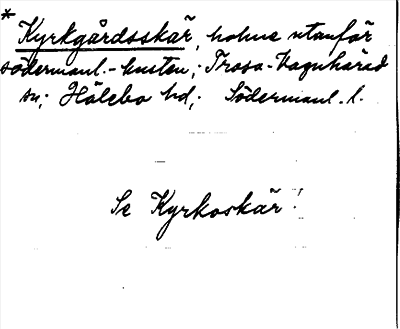 *
Kyrkgårdsskär, holme utanför
södermanl.-kusten; Trosa-Vagnhärad
sn; Hölebo hd; Södermanl. l.
Se Kyrkoskär!